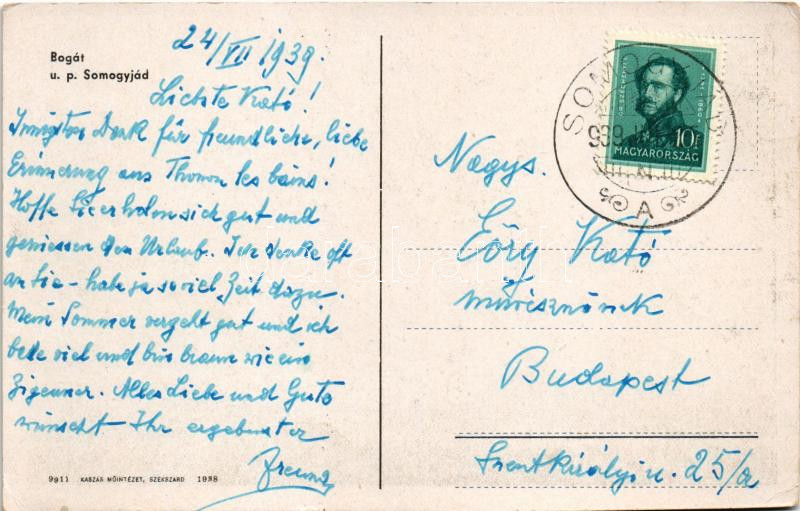 Bogát
u. p. Somogyjád
24/VII 1939.
Liebste Kató!
Innigsten Dank für freundliche, liebe
Erinnerung aus Thonon les bains!
Hoffe Sie erholen sich gut und
geniessen den Urlaub. Ich denke oft
an Sie - habe ja so viel Zeit dazu.
Mein Sommer vergeht gut und ich
bade viel und bin braun wie ein
Zigeuner. Alles Liebe und Gute
wünscht Ihr ergebenster
9911 KASZÁS MŰINTÉZET, SZEKSZÁRD 1938
GR. SZÉCHENYI I.
10f
MAGYARORSZÁG
A
Nagys.
Eőry Kató
művésznőnek
Budapest
Szentkirályi u. 25/a